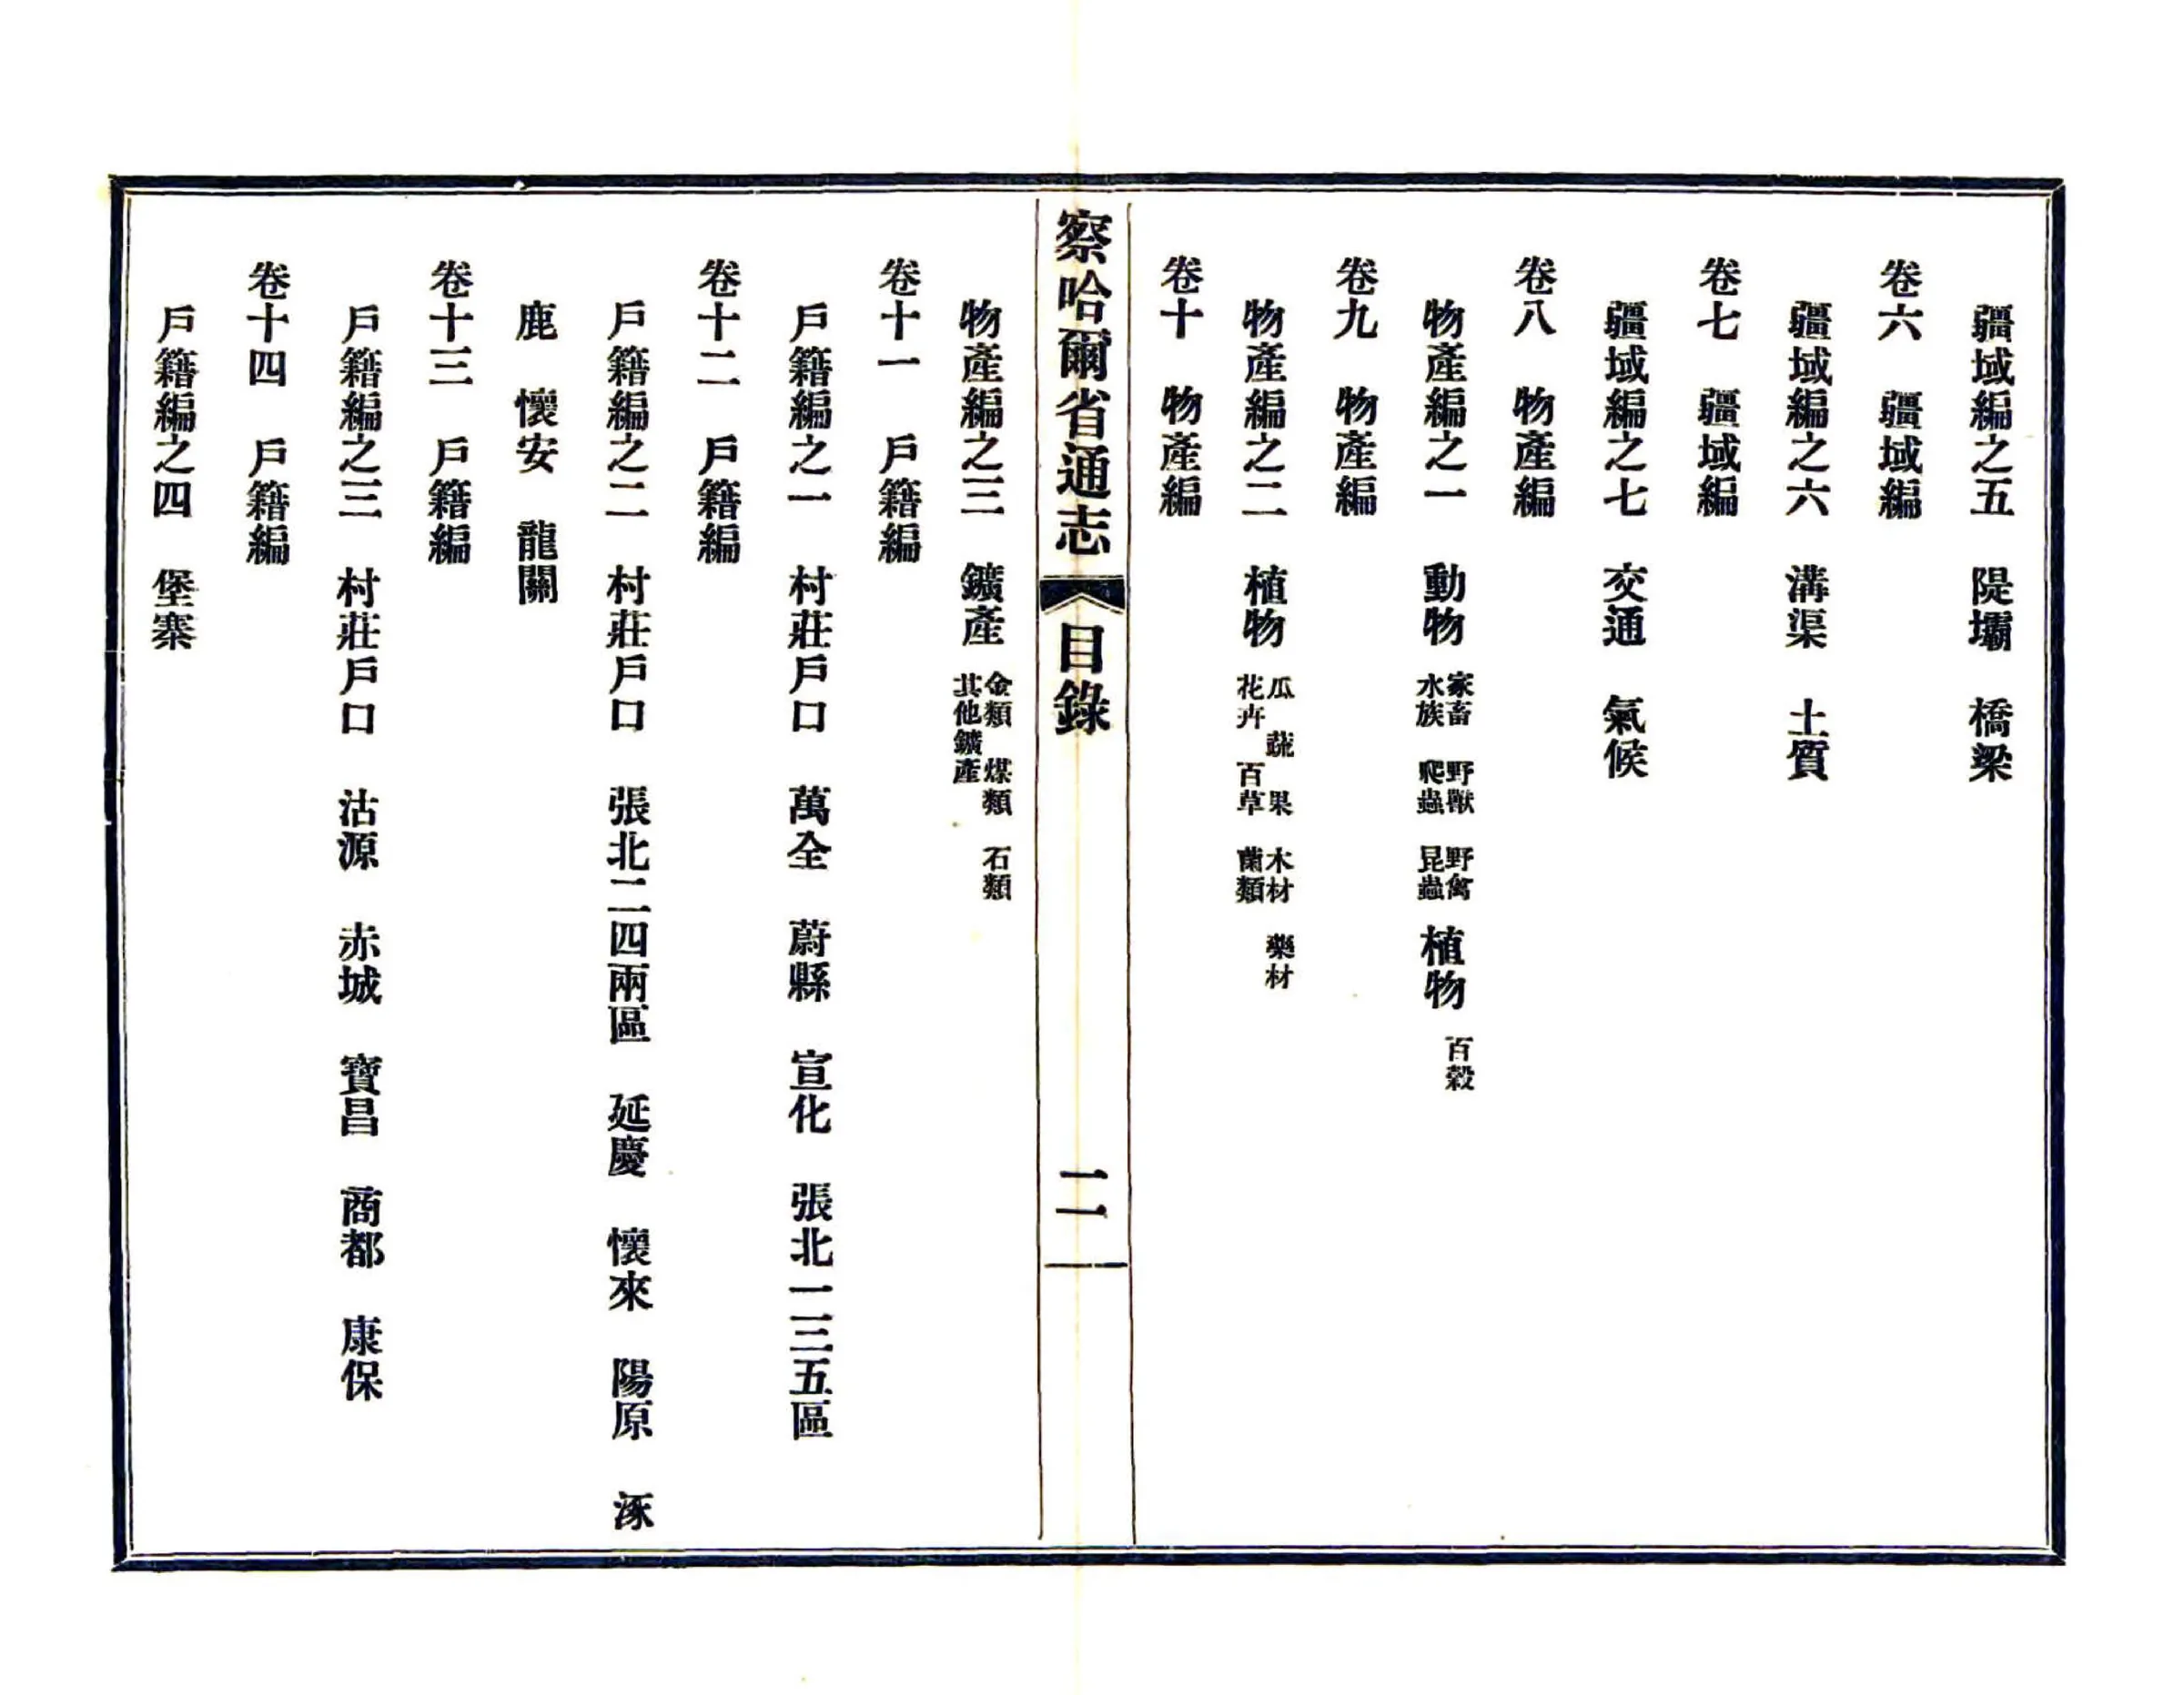 疆域編之五　隄壩　橋梁
卷六　疆域編
疆域編之六　溝渠　土質
卷七　疆域編
疆域編之七　交通　氣候
卷八　物產編
物產編之一　動物　家畜　野獸　野禽　水族　爬蟲　昆蟲　植物　百穀
卷九　物產編
物產編之二　植物　瓜　蔬　果　木材　藥材　花卉　百草　菌類
卷十　物產編
察哈爾省通志　目錄　二
物產編之三　鑛產　金類　煤類　石類　其他鑛產
卷十一　戶籍編
戶籍編之一　村莊戶口　萬全　蔚縣　宣化　張北一三五區
卷十二　戶籍編
戶籍編之二　村莊戶口　張北二四兩區　延慶　懷來　陽原　涿
鹿　懷安　龍關
卷十三　戶籍編
戶籍編之三　村莊戶口　沽源　赤城　寶昌　商都　康保
卷十四　戶籍編
戶籍編之四　堡寨